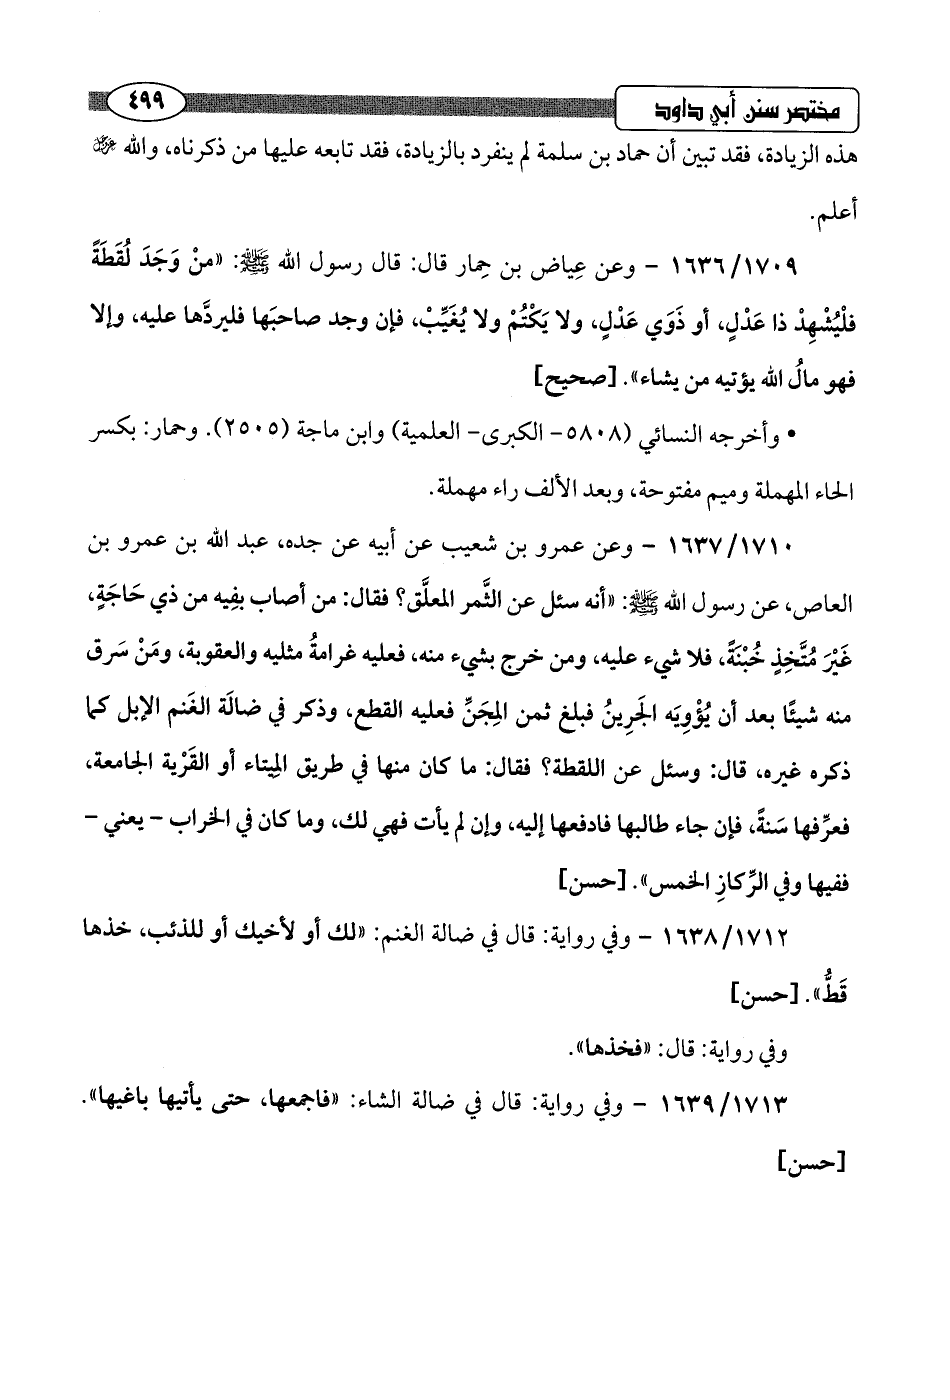 مختصر سنن أبي داود
٤٩٩
هذه الزيادة، فقد تبين أن حماد بن سلمة لم ينفرد بالزيادة، فقد تابعه عليها من ذكرناه، والله ﷻ
أعلم.
١٦٣٦/١٧٠٩ - وعن عِياض بن حِمار قال: قال رسول الله ﷺ: «منْ وَجَدَ لُقَطَةً
فلْيُشْهِدْ ذا عَدْلٍ، أو ذَوَي عَدْلٍ، ولا يَكْتُمْ ولا يُغَيِّبْ، فإن وجد صاحبَها فليردَّها عليه، وإلا
فهو مالُ الله يؤتيه من يشاء». [صحيح]
• وأخرجه النسائي (٥٨٠٨- الكبرى- العلمية) وابن ماجة (٢٥٠٥). وحمار: بكسر
الحاء المهملة وميم مفتوحة، وبعد الألف راء مهملة.
١٦٣٧/١٧١٠ - وعن عمرو بن شعيب عن أبيه عن جده، عبد الله بن عمرو بن
العاص، عن رسول الله ﷺ: «أنه سئل عن الثَّمر المعلَّق؟ فقال: من أصاب بفِيه من ذي حَاجَةٍ،
غَيْرَ مُتَّخِذٍ خُبْنَةً، فلا شيء عليه، ومن خرج بشيء منه، فعليه غرامةُ مثليه والعقوبة، ومَنْ سَرق
منه شيئًا بعد أن يُؤْوِيَه الجَرِينُ فبلغ ثمن المِجَنِّ فعليه القطع، وذكر في ضالَة الغَنم الإبل كما
ذكره غيره، قال: وسئل عن اللقطة؟ فقال: ما كان منها في طريق المِيتاء أو القَرْية الجامعة،
فعرِّفها سَنةً، فإن جاء طالبها فادفعها إليه، وإن لم يأت فهي لك، وما كان في الخراب - يعني -
ففيها وفي الرِّكازِ الخمس». [حسن]
١٦٣٨/١٧١٢ - وفي رواية: قال في ضالة الغنم: «لك أو لأخيك أو للذئب، خذها
قَطُّ». [حسن]
وفي رواية: قال: «فخذها».
١٦٣٩/١٧١٣ - وفي رواية: قال في ضالة الشاء: «فاجمعها، حتى يأتيها باغيها».
[حسن]